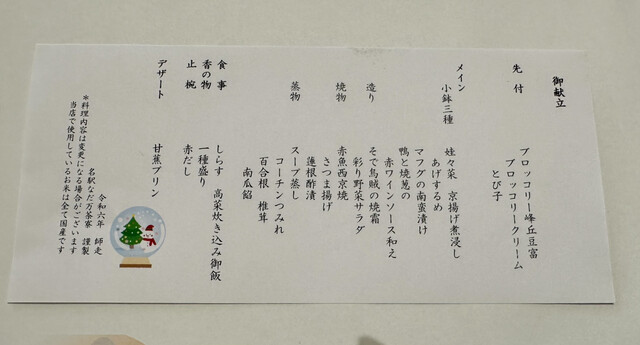 御献立
先付
ブロッコリー峰丘豆富
ブロッコリークリーム
とび子
メイン
小鉢三種
娃々菜 京揚げ煮浸し
あげするめ
マフグの南蛮漬け
鴨と焼葱の
赤ワインソース和え
造り
そで烏賊の焼霜
彩り野菜サラダ
焼物
赤魚西京焼
さつま揚げ
蓮根酢漬
蒸物
スープ蒸し
コーチンつみれ
百合根 椎茸
南瓜餡
食事
しらす 高菜炊き込み御飯
香の物
一種盛り
止椀
赤だし
デザート
甘蕉プリン
令和六年 師走
名駅なだ万茶寮 謹製
*料理内容は変更になる場合がございます
当店で使用しているお米は全て国産です